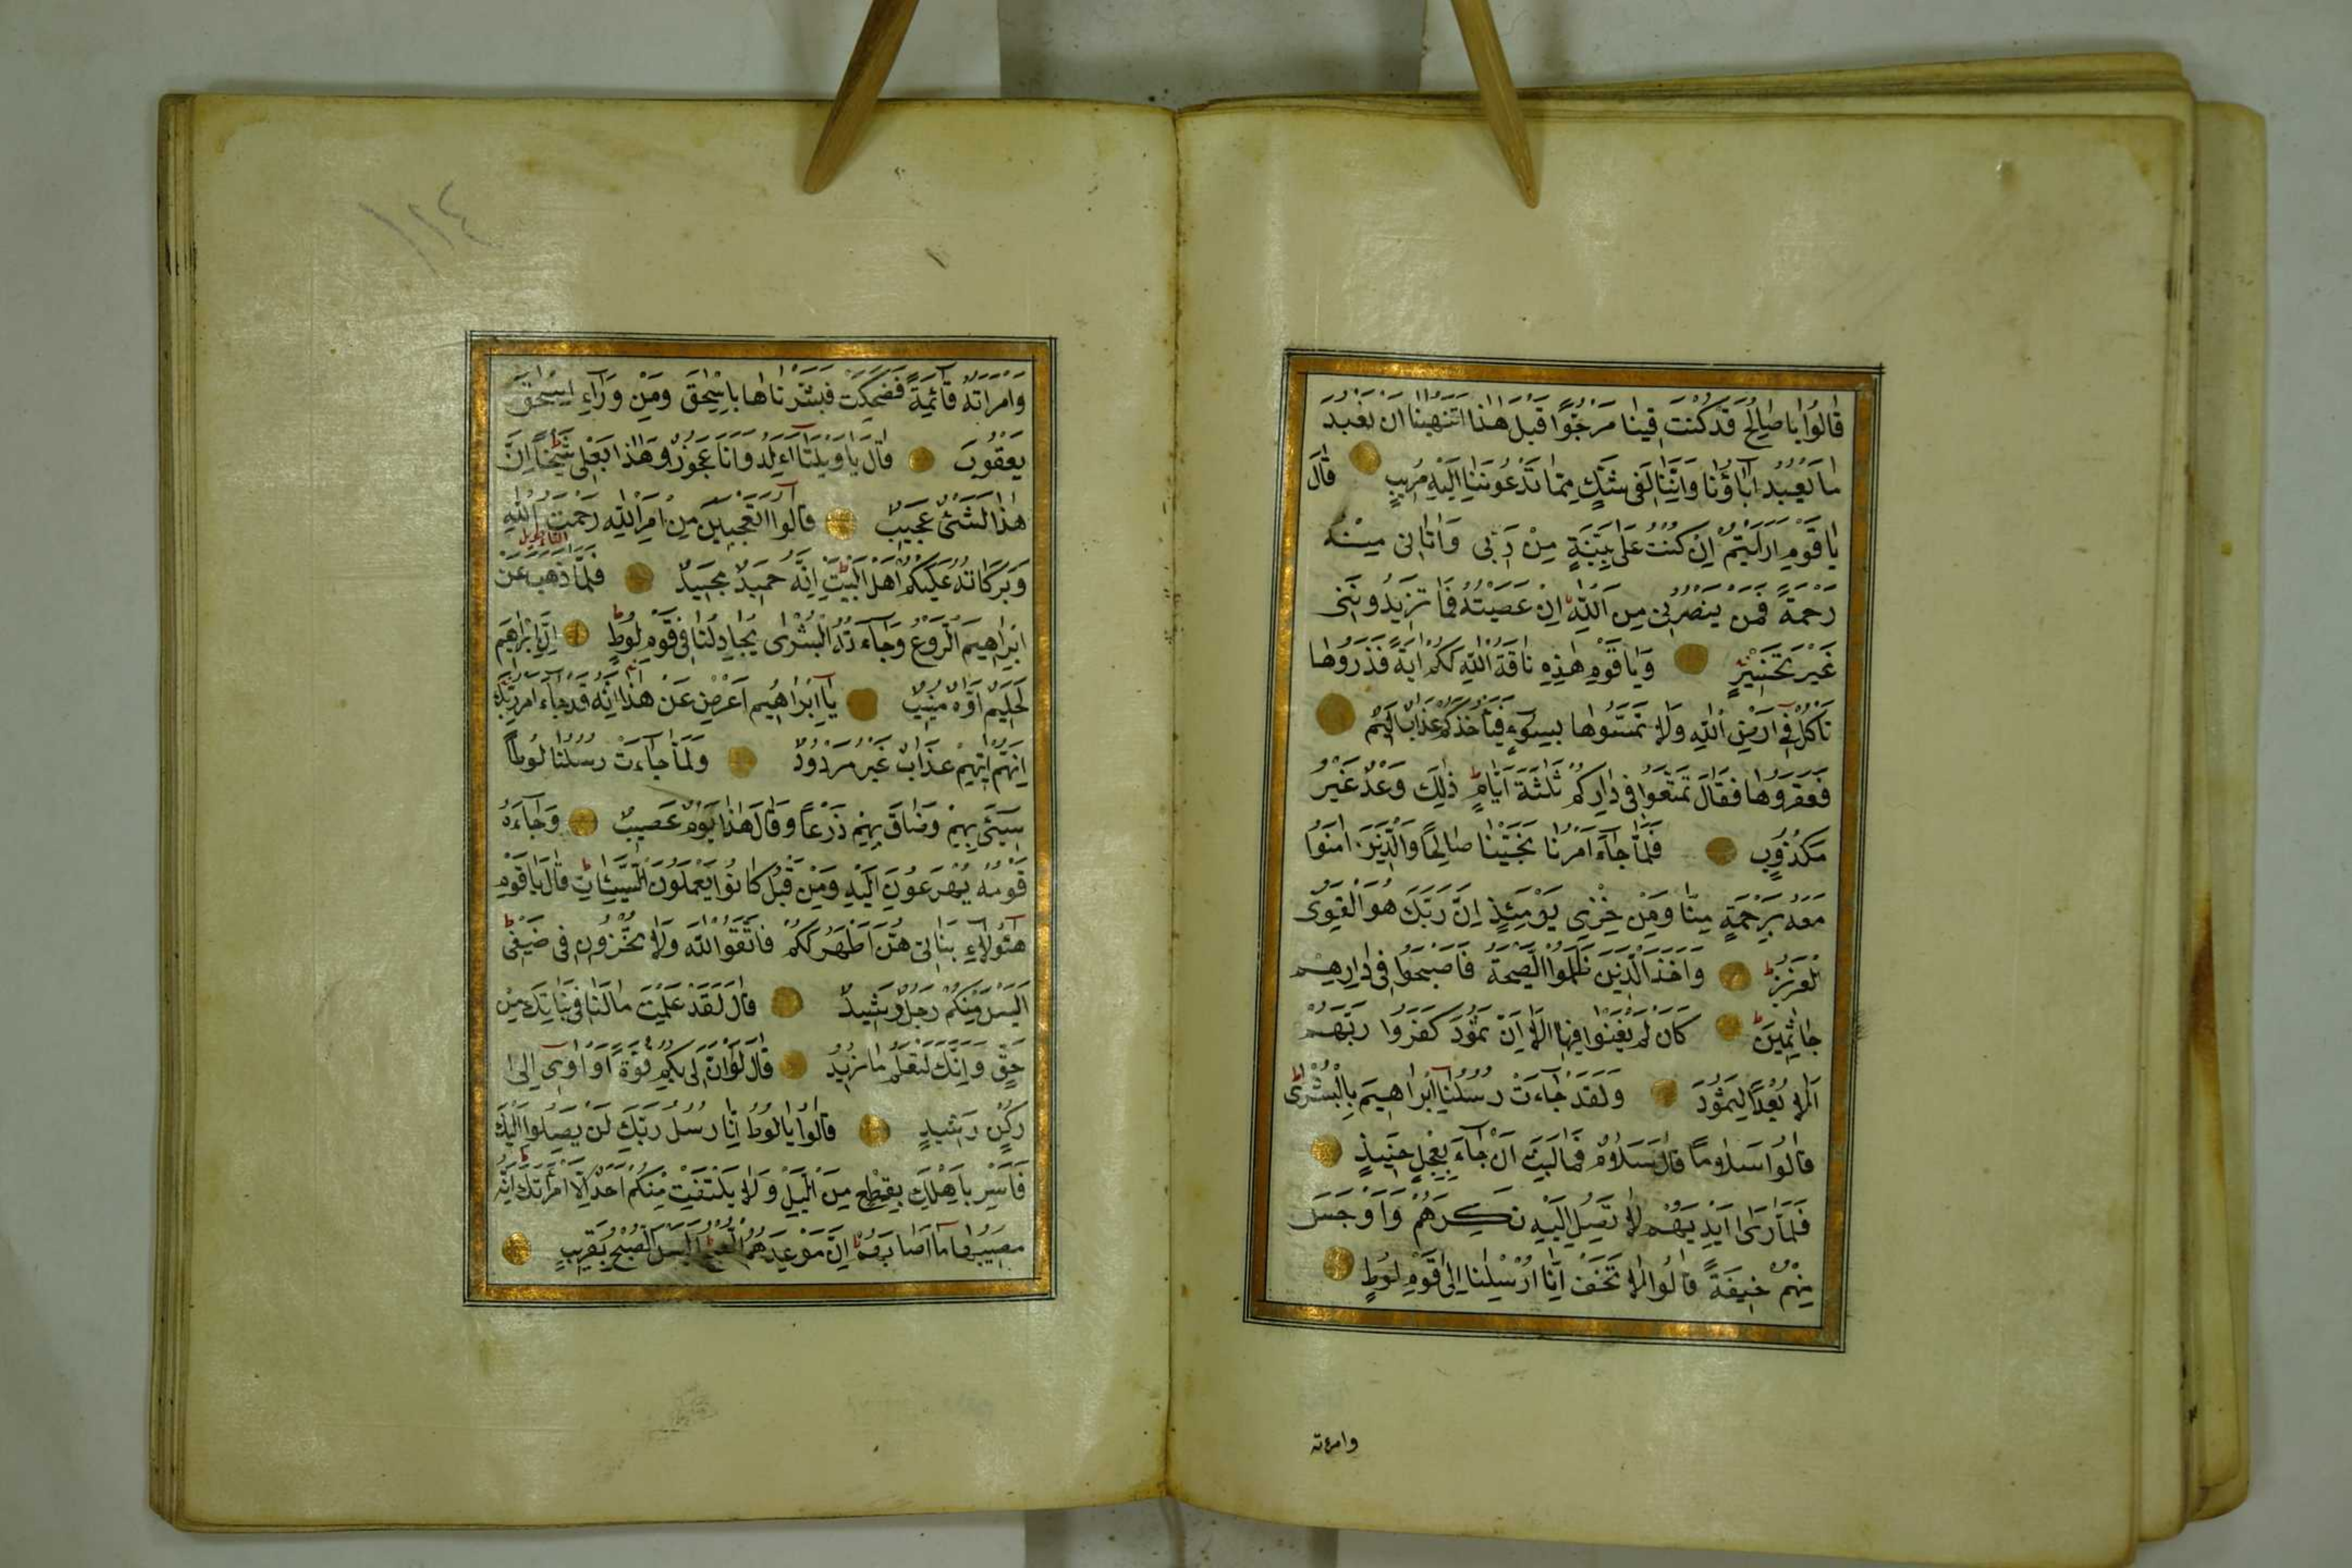 قَالُوا يَا صَالِحُ قَدْ كُنْتَ فِينَا مَرْجُوًّا قَبْلَ هٰذَا اَتَنْهٰينَا اَنْ نَعْبُدَ
مَا يَعْبُدُ اٰبَاؤُنَا وَاِنَّنَا لَفِى شَكٍّ مِمَّا تَدْعُونَنَا اِلَيْهِ مُرِيبٍ قَالَ
يَا قَوْمِ اَرَاَيْتُمْ اِنْ كُنْتُ عَلٰى بَيِّنَةٍ مِنْ رَبِّى وَاٰتَانِى مِنْهُ
رَحْمَةً فَمَنْ يَنْصُرُنِى مِنَ اللّٰهِ اِنْ عَصَيْتُهُ فَمَا تَزِيدُونَنِى
غَيْرَ تَخْسِيرٍ وَيَا قَوْمِ هٰذِهِ نَاقَةُ اللّٰهِ لَكُمْ اٰيَةً فَذَرُوهَا
تَاْكُلْ فِى اَرْضِ اللّٰهِ وَلَا تَمَسُّوهَا بِسُوءٍ فَيَاْخُذَكُمْ عَذَابٌ اَلِيمٌ
فَعَقَرُوهَا فَقَالَ تَمَتَّعُوا فِى دَارِكُمْ ثَلٰثَةَ اَيَّامٍ ذٰلِكَ وَعْدٌ غَيْرُ
مَكْذُوبٍ فَلَمَّا جَاءَ اَمْرُنَا نَجَّيْنَا صَالِحًا وَالَّذِينَ اٰمَنُوا
مَعَهُ بِرَحْمَةٍ مِنَّا وَمِنْ خِزْىِ يَوْمِئِذٍ اِنَّ رَبَّكَ هُوَ الْقَوِىُّ
لْعَزِيزُ وَاَخَذَ الَّذِينَ ظَلَمُوا الصَّيْحَةُ فَاَصْبَحُوا فِى دِيَارِهِمْ
جَاثِمِينَ كَاَنْ لَمْ يَغْنَوْا فِيهَا اَلَا اِنَّ ثَمُودَ كَفَرُوا رَبَّهُمْ
اَلَا بُعْدًا لِثَمُودَ وَلَقَدْ جَاءَتْ رُسُلُنَا اِبْرَاهِيمَ بِالْبُشْرٰى
قَالُوا سَلَامًا قَالَ سَلَامٌ فَمَا لَبِثَ اَنْ جَاءَ بِعِجْلٍ حَنِيذٍ
فَلَمَّا رَاٰى اَيْدِيَهُمْ لَا تَصِلُ اِلَيْهِ نَكِرَهُمْ وَاَوْجَسَ
مِنْهُمْ خِيفَةً قَالُوا لَا تَخَفْ اِنَّا اُرْسِلْنَا اِلٰى قَوْمِ لُوطٍ
وامرءته
١٢٤
وَامْرَاَتُهُ قَائِمَةٌ فَضَحِكَتْ فَبَشَّرْنَاهَا بِاِسْحٰقَ وَمِنْ وَرَاءِ اِسْحٰقَ
يَعْقُوبَ قَالَ يَا وَيْلَتَا ءَاَلِدُ وَاَنَا عَجُوزٌ وَهٰذَا بَعْلِى شَيْخًا اِنَّ
هٰذَا لَشَىْءٌ عَجِيبٌ قَالُوا اَتَعْجَبِينَ مِنْ اَمْرِ اللّٰهِ رَحْمَتُ اللّٰهِ
وَبَرَكَاتُهُ عَلَيْكُمْ اَهْلَ الْبَيْتِ اِنَّهُ حَمِيدٌ مَجِيدٌ فَلَمَّا ذَهَبَ عَنْ
اِبْرَاهِيمَ الرَّوْعُ وَجَاءَتْهُ الْبُشْرٰى يُجَادِلُنَا فِى قَوْمِ لُوطٍ اِنَّ اِبْرَاهِيمَ
لَحَلِيمٌ اَوَّاهٌ مُنِيبٌ يَا اِبْرَاهِيمُ اَعْرِضْ عَنْ هٰذَا اِنَّهُ قَدْ جَاءَ اَمْرُ رَبِّكَ
اِنَّهُمْ اٰتِيهِمْ عَذَابٌ غَيْرُ مَرْدُودٍ وَلَمَّا جَاءَتْ رُسُلُنَا لُوطًا
سِىءَ بِهِمْ وَضَاقَ بِهِمْ ذَرْعًا وَقَالَ هٰذَا يَوْمٌ عَصِيبٌ وَجَاءَهُ
قَوْمُهُ يُهْرَعُونَ اِلَيْهِ وَمِنْ قَبْلُ كَانُوا يَعْمَلُونَ السَّيِّئَاتِ قَالَ يَا قَوْمِ
هٰؤُلَاءِ بَنَاتِى هُنَّ اَطْهَرُ لَكُمْ فَاتَّقُوا اللّٰهَ وَلَا تُخْزُونِ فِى ضَيْفِى
اَلَيْسَ مِنْكُمْ رَجُلٌ رَشِيدٌ قَالَ لَقَدْ عَلِمْتَ مَا لَنَا فِى بَنَاتِكَ مِنْ
حَقٍّ وَاِنَّكَ لَتَعْلَمُ مَا نُرِيدُ قَالَ لَوْ اَنَّ لِى بِكُمْ قُوَّةً اَوْ اٰوِى اِلٰى
رُكْنٍ رَشِيدٍ قَالُوا يَا لُوطُ اِنَّا رُسُلُ رَبِّكَ لَنْ يَصِلُوا اِلَيْكَ
فَاَسْرِ بِاَهْلِكَ بِقِطْعٍ مِنَ الَّيْلِ وَلَا يَلْتَفِتْ مِنْكُمْ اَحَدٌ اِلَّا امْرَاَتَكَ اِنَّهُ
مُصِيبُهَا مَا اَصَابَهُمْ اِنَّ مَوْعِدَهُمُ الصُّبْحُ اَلَيْسَ الصُّبْحُ بِقَرِيبٍ